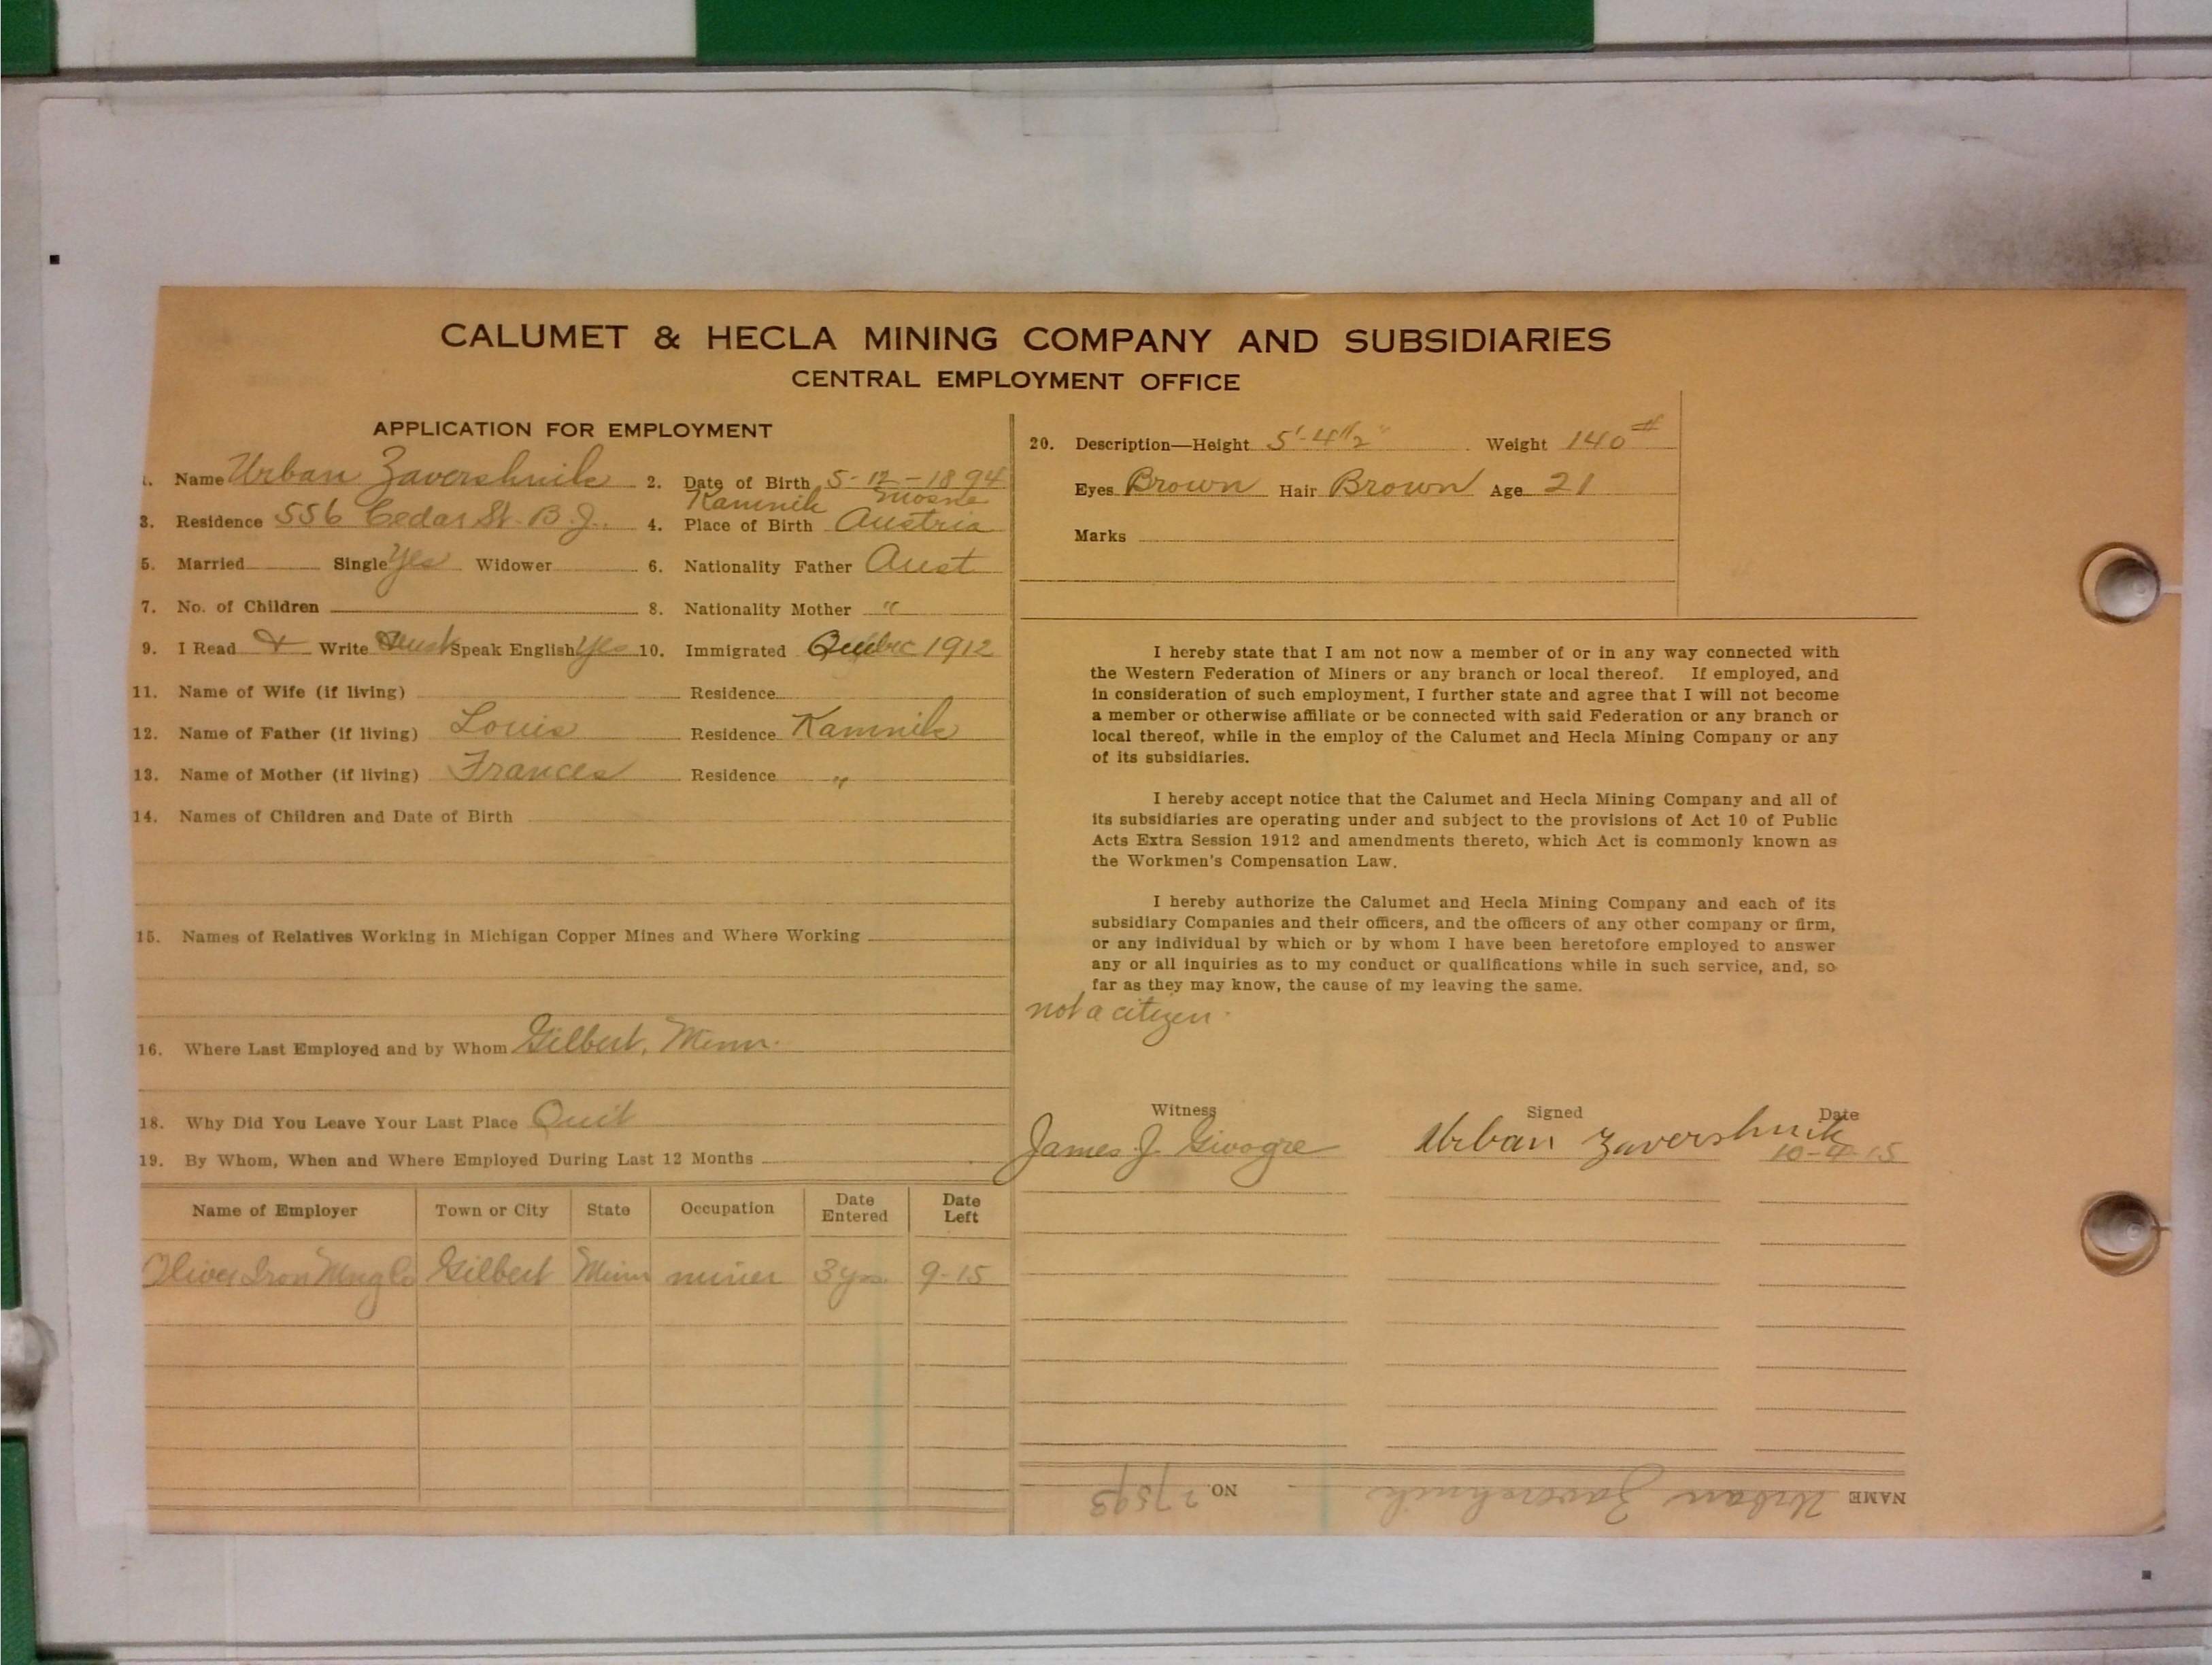 CALUMET & HECLA MINING COMPANY AND SUBSIDIARIES
CENTRAL EMPLOYMENT OFFICE
APPLICATION FOR EMPLOYMENT
1. Name Urban Zavershnik 2. Date of Birth 5-12-1894
Kamnik
3. Residence 556 Cedar St. B.J. 4. Place of Birth Austria
5. Married Single Yes Widower 6. Nationality Father Aust
7. No. of Children 8. Nationality Mother "
9. I Read & Write Aust Speak English Yes 10. Immigrated Quebec 1912
11. Name of Wife (if living) Residence
12. Name of Father (if living) Louis Residence Kamnik
13. Name of Mother (if living) Frances Residence "
14. Names of Children and Date of Birth
15. Names of Relatives Working in Michigan Copper Mines and Where Working
16. Where Last Employed and by Whom Gilbert, Minn.
18. Why Did You Leave Your Last Place Quit
19. By Whom, When and Where Employed During Last 12 Months
Name of Employer Town or City State Occupation Date Entered Date Left
Oliver Iron Mng Co Gilbert Minn miner 3 yrs 9-15
20. Description—Height 5'-4 1/2" Weight 140#
Eyes Brown Hair Brown Age 21
Marks
I hereby state that I am not now a member of or in any way connected with
the Western Federation of Miners or any branch or local thereof. If employed, and
in consideration of such employment, I further state and agree that I will not become
a member or otherwise affiliate or be connected with said Federation or any branch or
local thereof, while in the employ of the Calumet and Hecla Mining Company or any
of its subsidiaries.
I hereby accept notice that the Calumet and Hecla Mining Company and all of
its subsidiaries are operating under and subject to the provisions of Act 10 of Public
Acts Extra Session 1912 and amendments thereto, which Act is commonly known as
the Workmen's Compensation Law.
I hereby authorize the Calumet and Hecla Mining Company and each of its
subsidiary Companies and their officers, and the officers of any other company or firm,
or any individual by which or by whom I have been heretofore employed to answer
any or all inquiries as to my conduct or qualifications while in such service, and, so
far as they may know, the cause of my leaving the same.
not a citizen.
Witness Signed Date
James J. Givogre Urban Zavershnik 10-4-15
NAME Urban Zavershnik NO. 27593